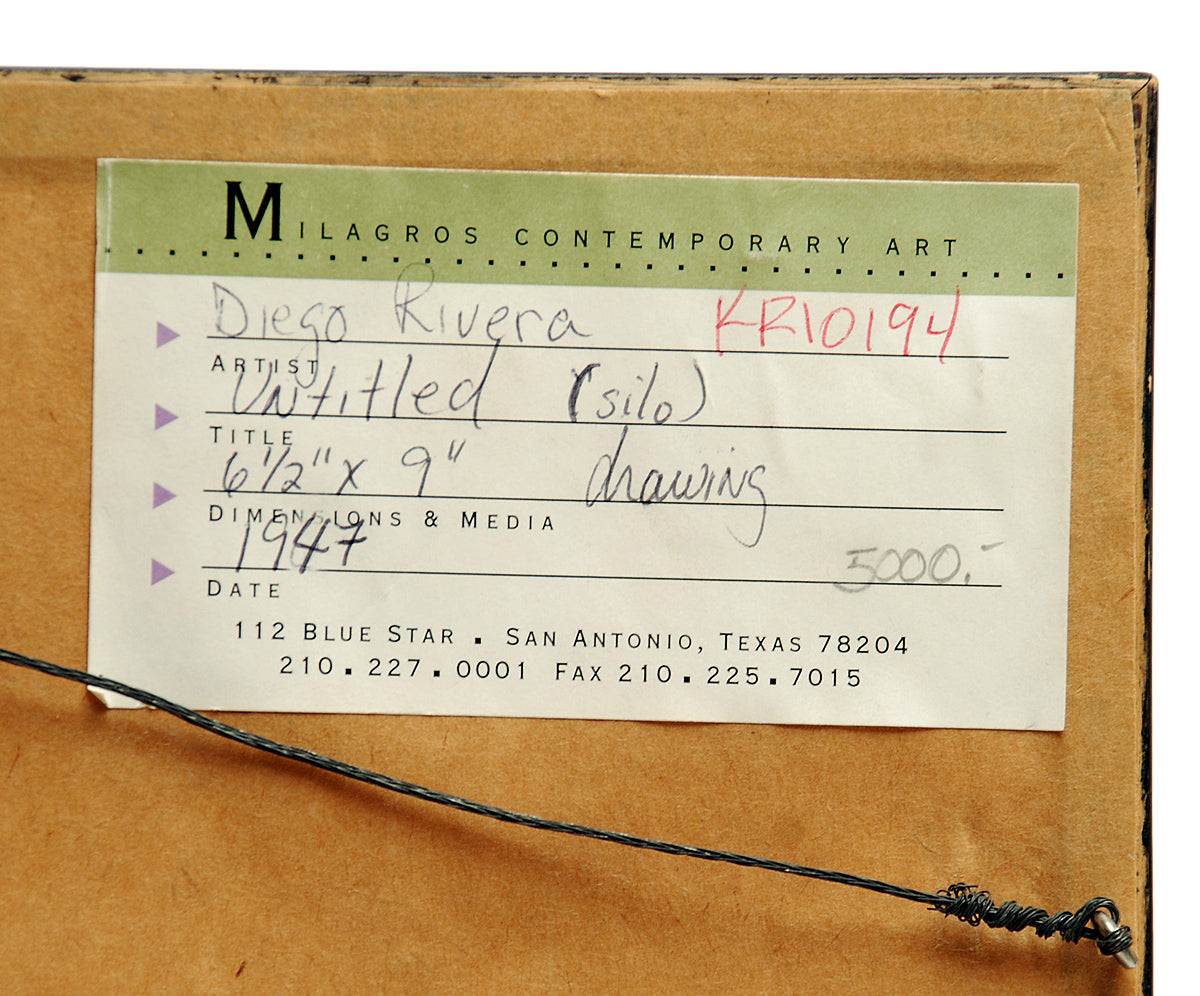 MILAGROS CONTEMPORARY ART
Diego Rivera KR10194
ARTIST
Untitled (silo)
TITLE
6 1/2" x 9" drawing
DIMENSIONS & MEDIA
1947
5000.-
DATE
112 BLUE STAR . SAN ANTONIO, TEXAS 78204
210.227.0001 FAX 210.225.7015